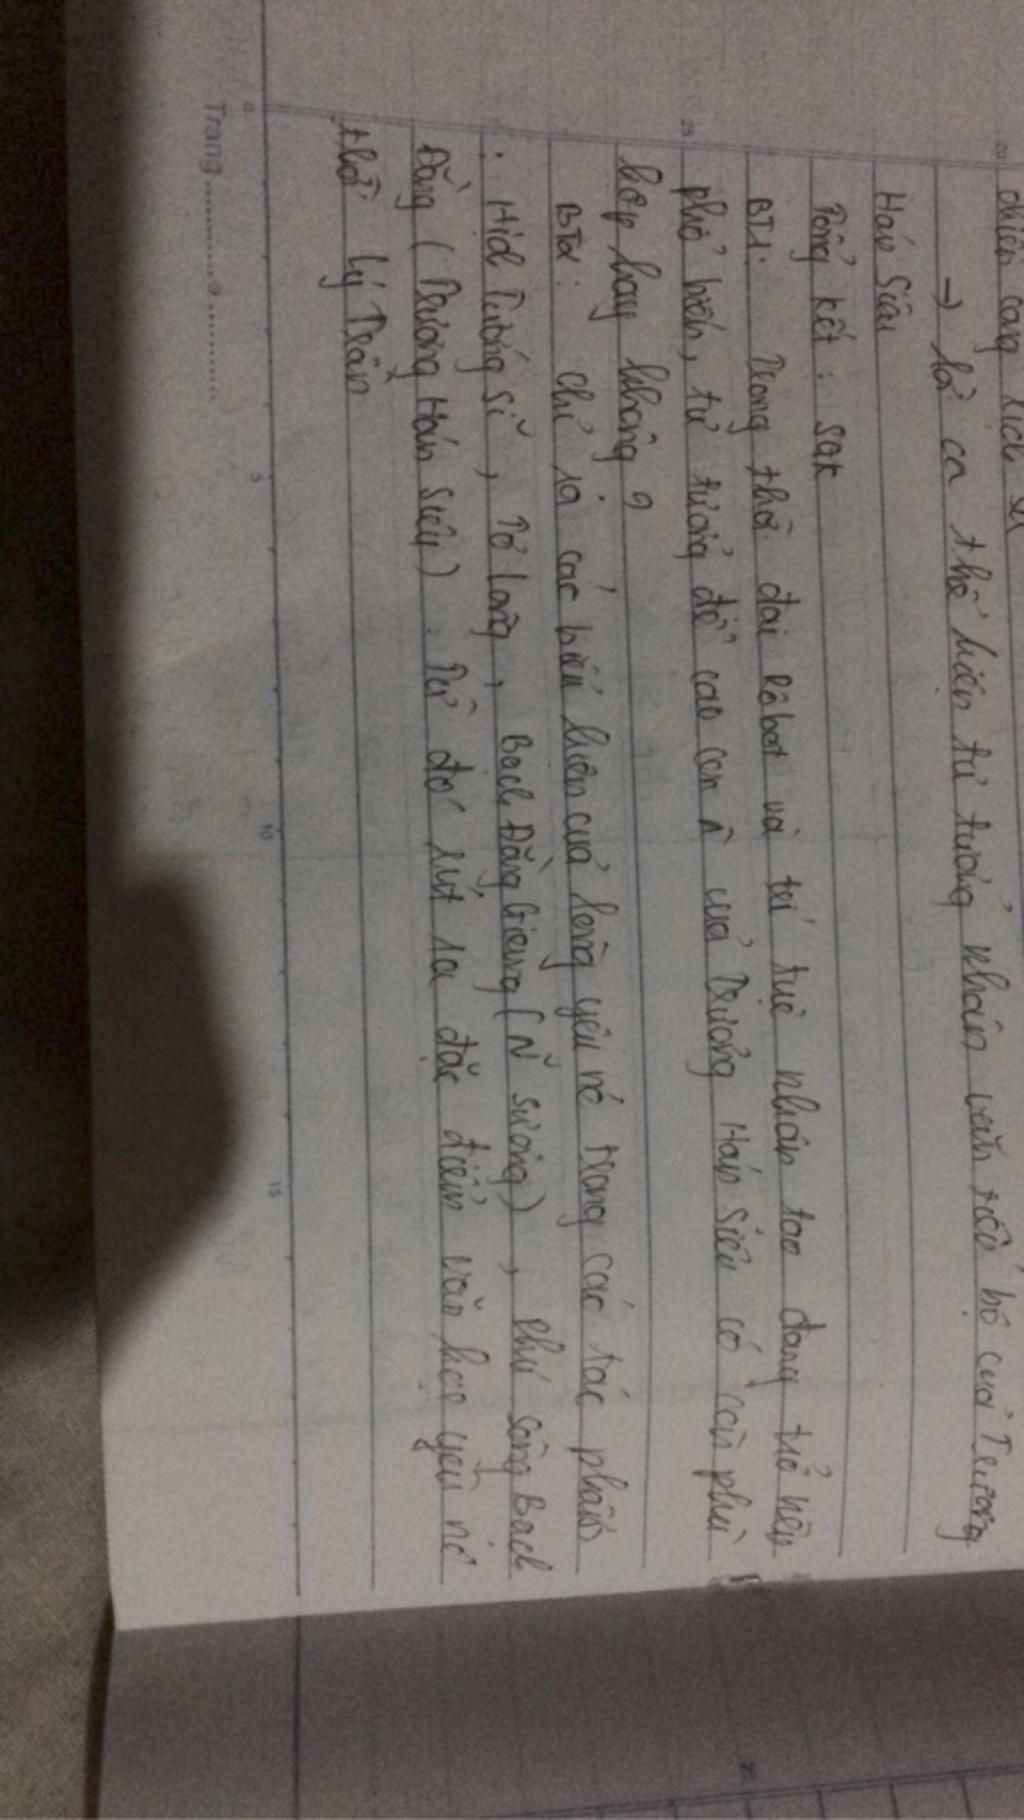 chiến công lịch sử
→ là ca thể hiện tư tưởng nhân văn tiến bộ của Trương
Hán Siêu
Tổng kết: SGK
BT1: Trong thời đại rôbot và trí tuệ nhân tạo đang trở nên
phổ biến, tư tưởng đề cao con n của Trương Hán Siêu có còn phù
hợp hay không?
BT2: Chỉ ra các biểu hiện của lòng yêu nc trong các tác phẩm
: Hịch Tướng Sĩ, Tỏ Lòng, Bạch Đằng Giang (N̂ Sưởng), Phú sông Bạch
Đằng (Trương Hán Siêu). Từ đó rút ra đặc điểm văn học yêu nc
thời Lý Trần
Trang
20
25
0
5
10
15